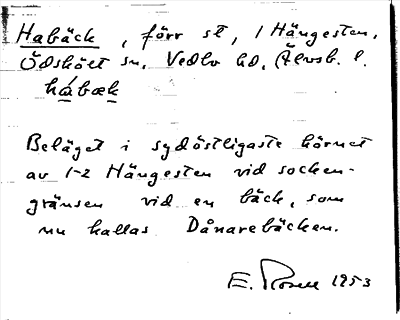 Habäck, förr st, 1 Hängesten,
Ödskölt sn, Vedbo hd, Älvsb. l.
hábæk
Beläget i sydöstligaste hörnet
av 1-2 Hängesten vid socken-
gränsen vid en bäck, som
nu kallas Dånarebäcken.
E. Rosell 1953